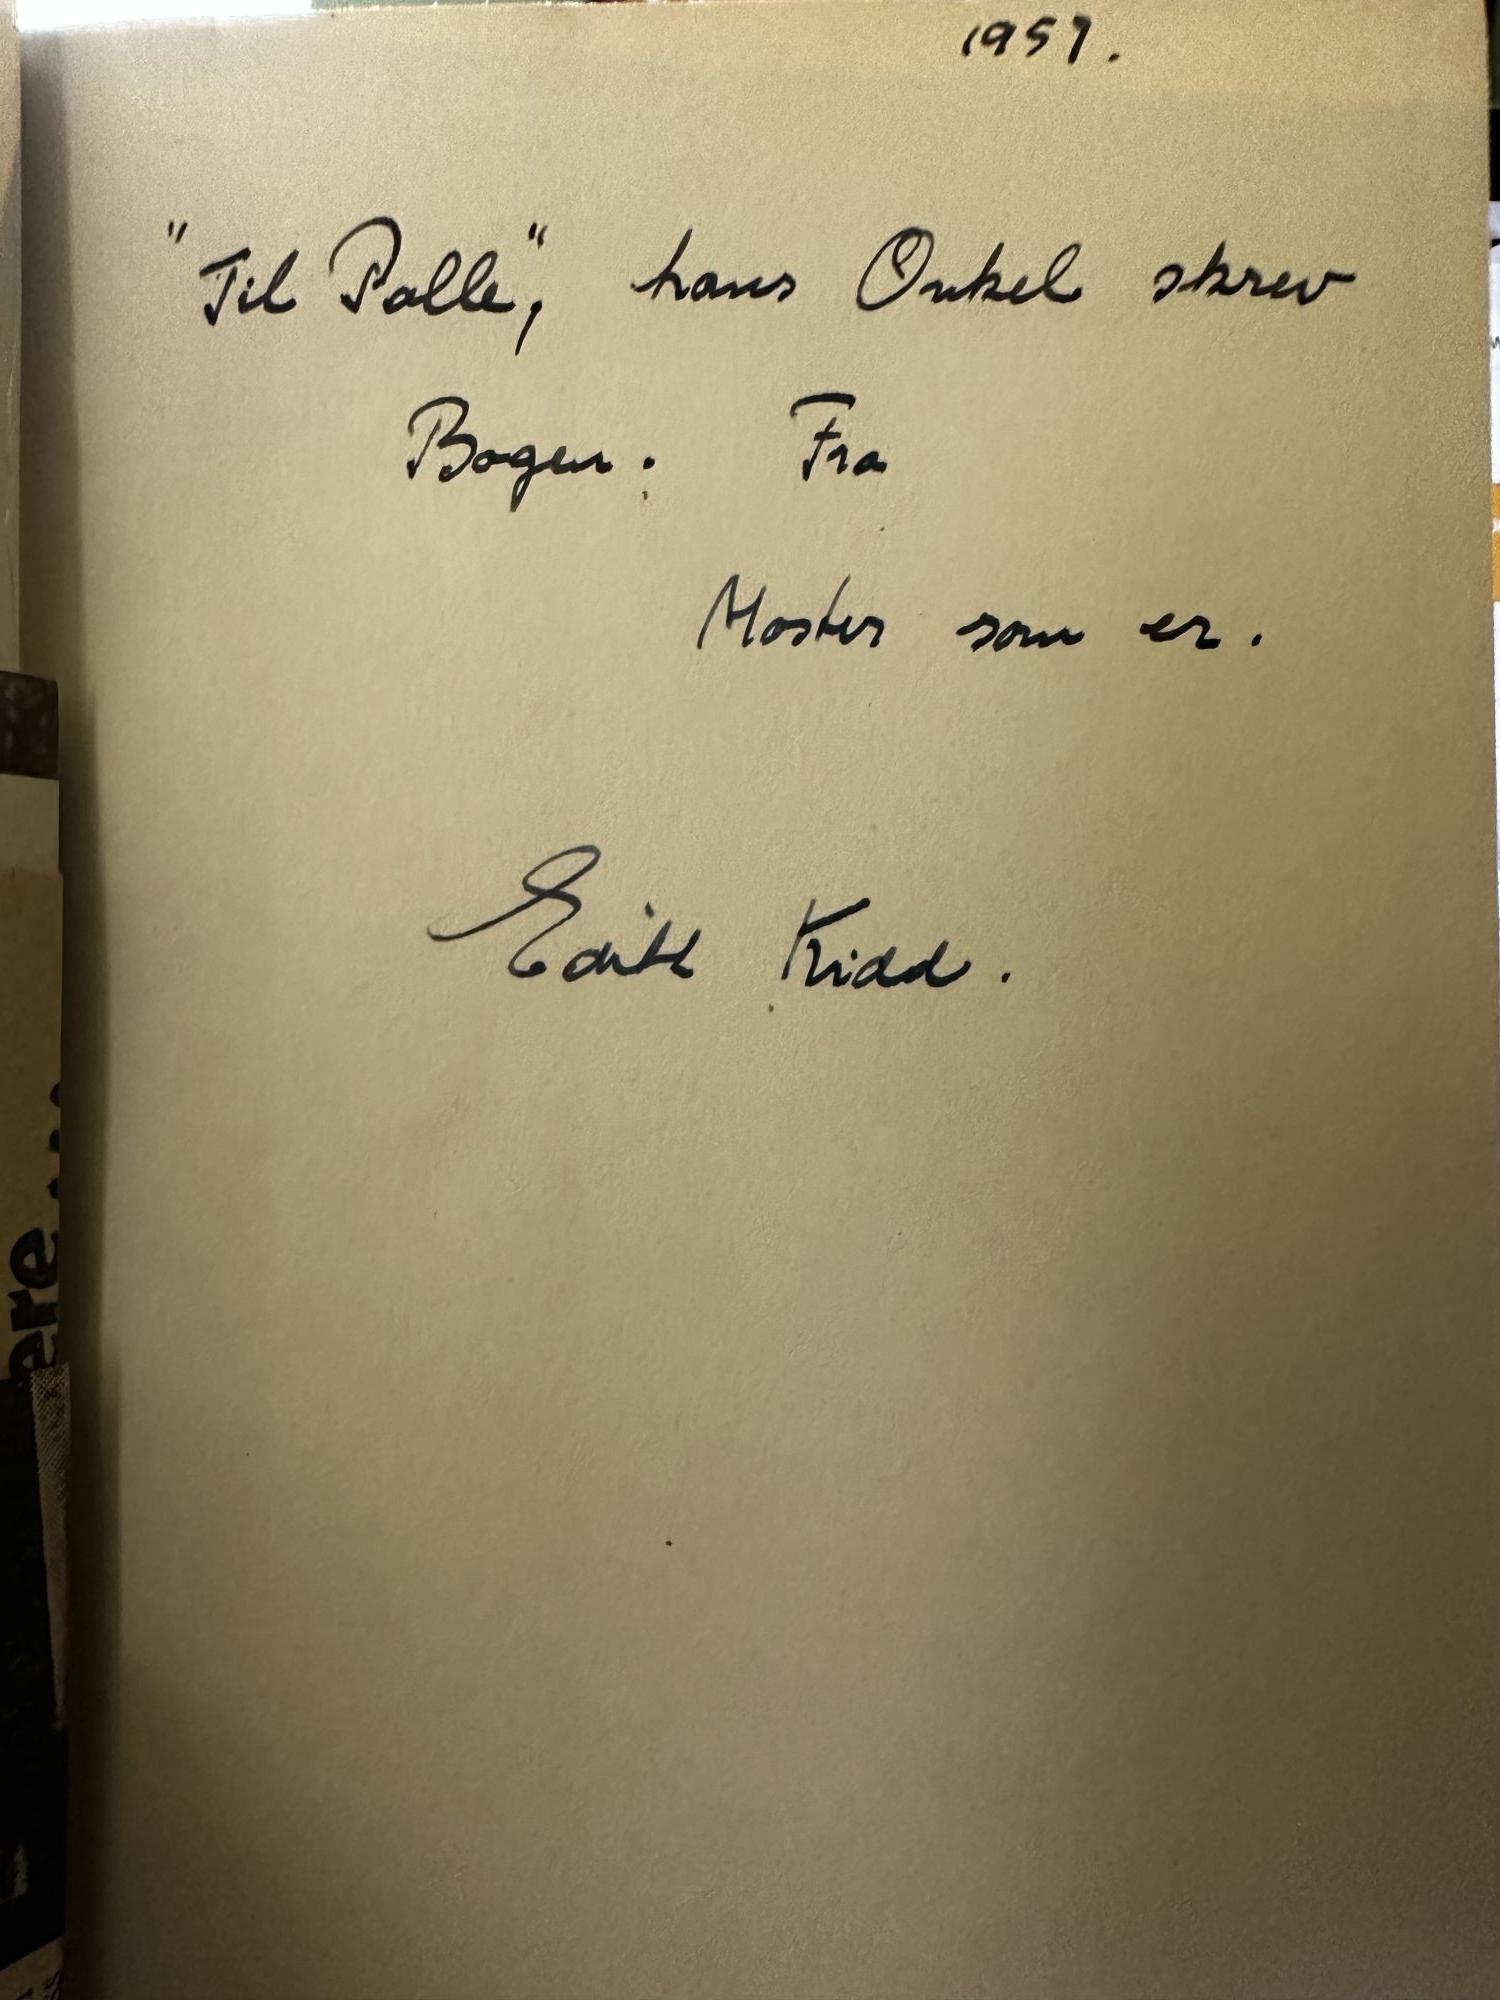 1957.
"Til Palle", hans Onkel skrev
Bogen. Fra
Moster som er.
Edith Kidd.
ere